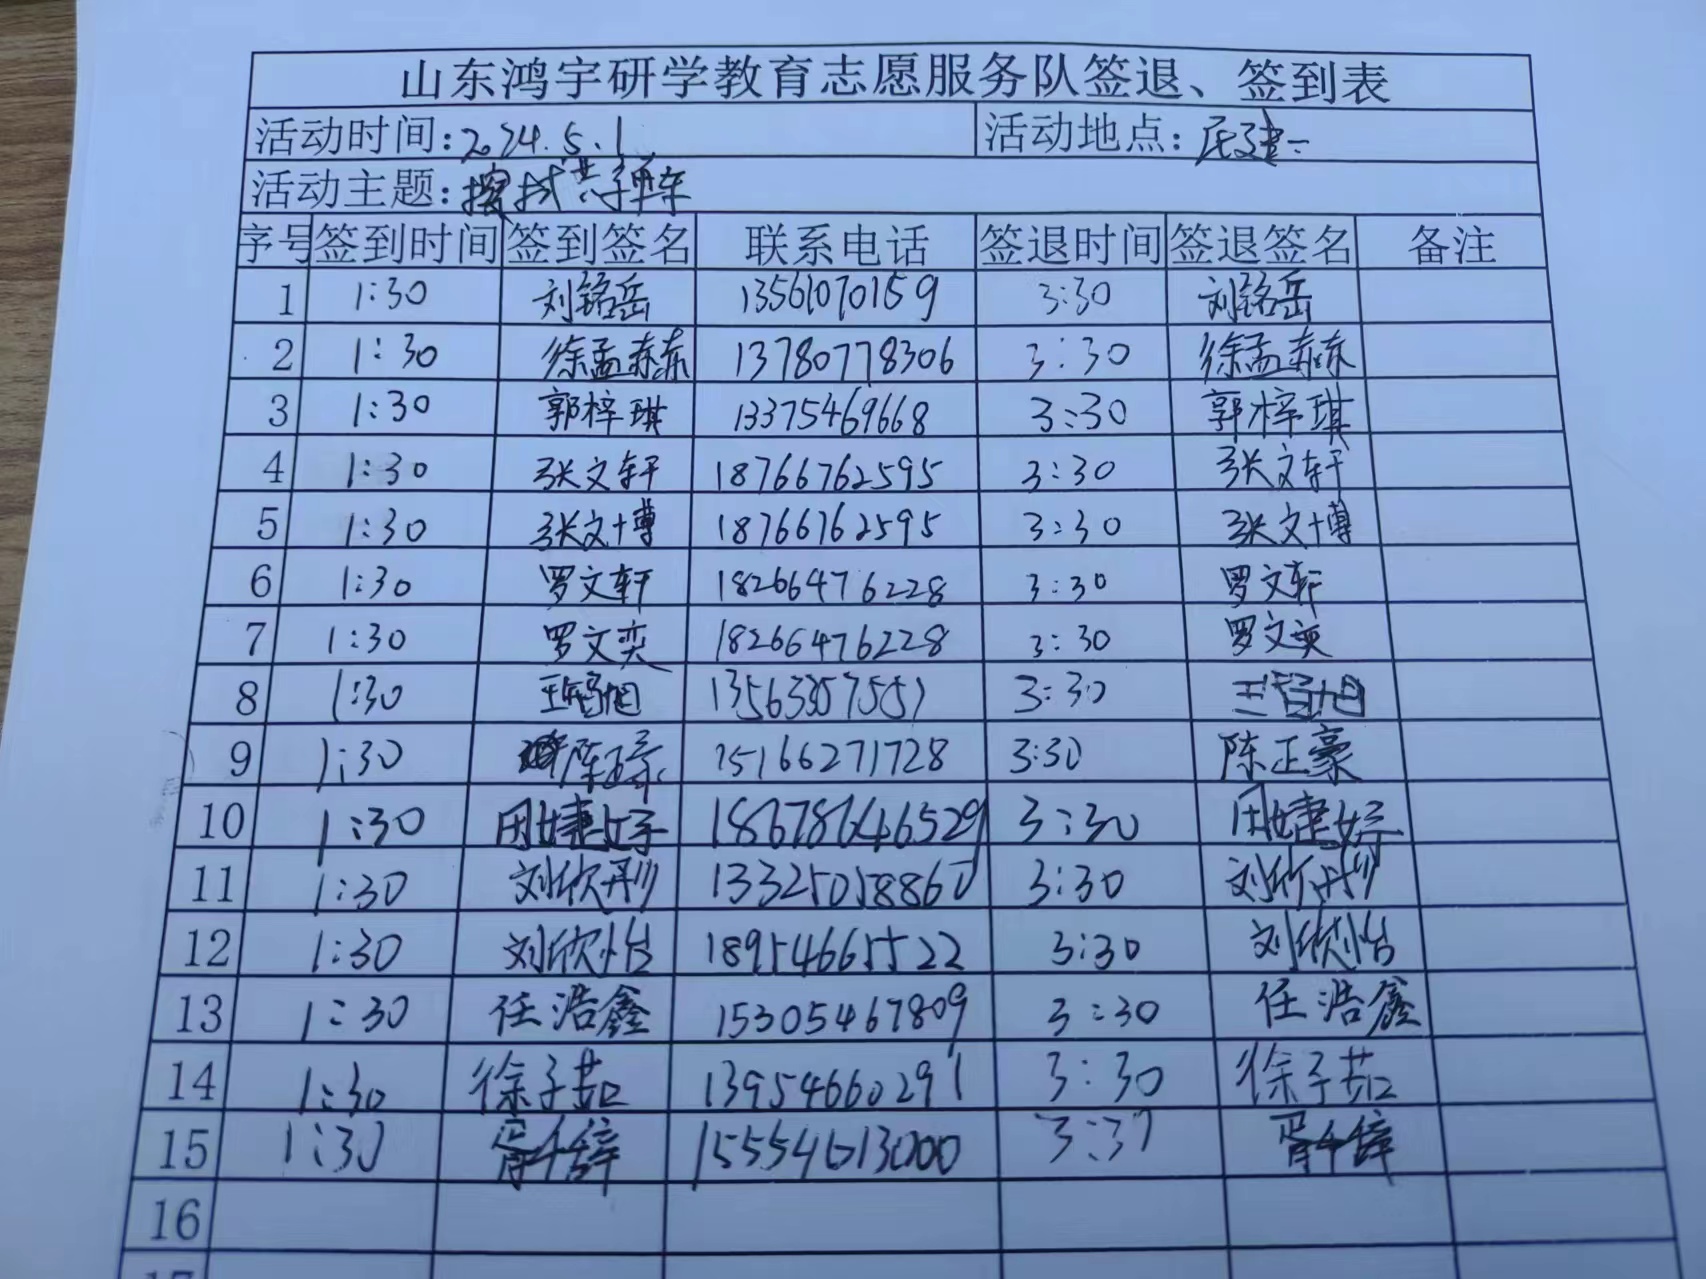 山东鸿宇研学教育志愿服务队签退、签到表
活动时间:2024.5.1 活动地点:民建
活动主题:擦拭共享单车
序号 签到时间 签到签名 联系电话 签退时间 签退签名 备注
1 1:30 刘铭岳 13561070159 3:30 刘铭岳
2 1:30 徐孟赫 13780778306 3:30 徐孟赫
3 1:30 郭梓琪 13375469668 3:30 郭梓琪
4 1:30 张文轩 18766762595 3:30 张文轩
5 1:30 张文博 18766762595 3:30 张文博
6 1:30 罗文轩 18266476228 3:30 罗文轩
7 1:30 罗文奕 18266476228 3:30 罗文奕
8 1:30 3:30
9 1:30 陈正豪 15166271728 3:30 陈正豪
10 1:30 田婕妤 3:30 田婕妤
11 1:30 刘欣彤 13325058860 3:30 刘欣彤
12 1:30 刘欣怡 18954665522 3:30 刘欣怡
13 1:30 任浩鑫 15305467809 3:30 任浩鑫
14 1:30 徐子茹 13954660291 3:30 徐子茹
15 1:30 3:37
16
17